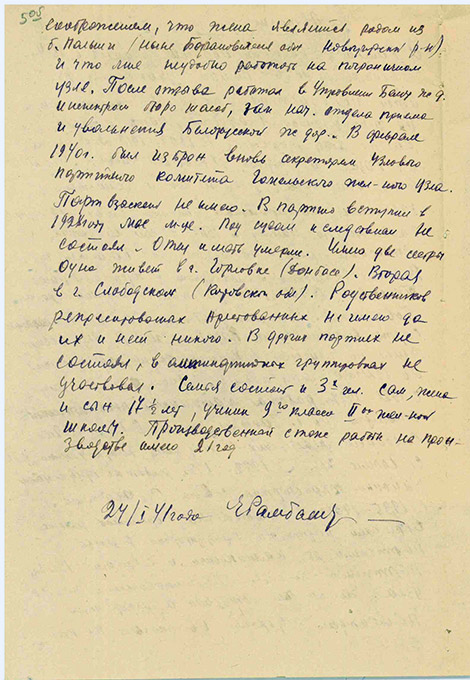 505
соображением, что жена является родом из
б. Польши (ныне Барановичская обл Новогрудский р-н)
и что мне неудобно работать на пограничном
узле. После отзыва работал в Управлении Бел ж. д.
инспектором бюро жалоб, зам нач. отдела приема
и увольнения Белорусской ж дор.. В феврале
1940г. был избран вновь секретарем Узлового
партийного комитета Гомельского жел-ного узла.
Парт взыскания не имею. В партию вступил в
мае м-це. Под судом и следствием не
состоял. Отец и мать умерли. Имею две сестры
Одна живет в г. Горловке (Донбасс). Вторая
в г. Слободском (Кировской обл). Родственников
репрессированых арестованных не имею да
их и нет никого. В других партиях не
состоял, в антипартийных группировках не
участвовал. Семья состоит из 3х чел. сам, жена
и сын 17 ½ лет, ученик 9го класса II ой жел-ной
школы. Производственной стаж работы на произ-
зводстве имею 21 год
24/I 41 года